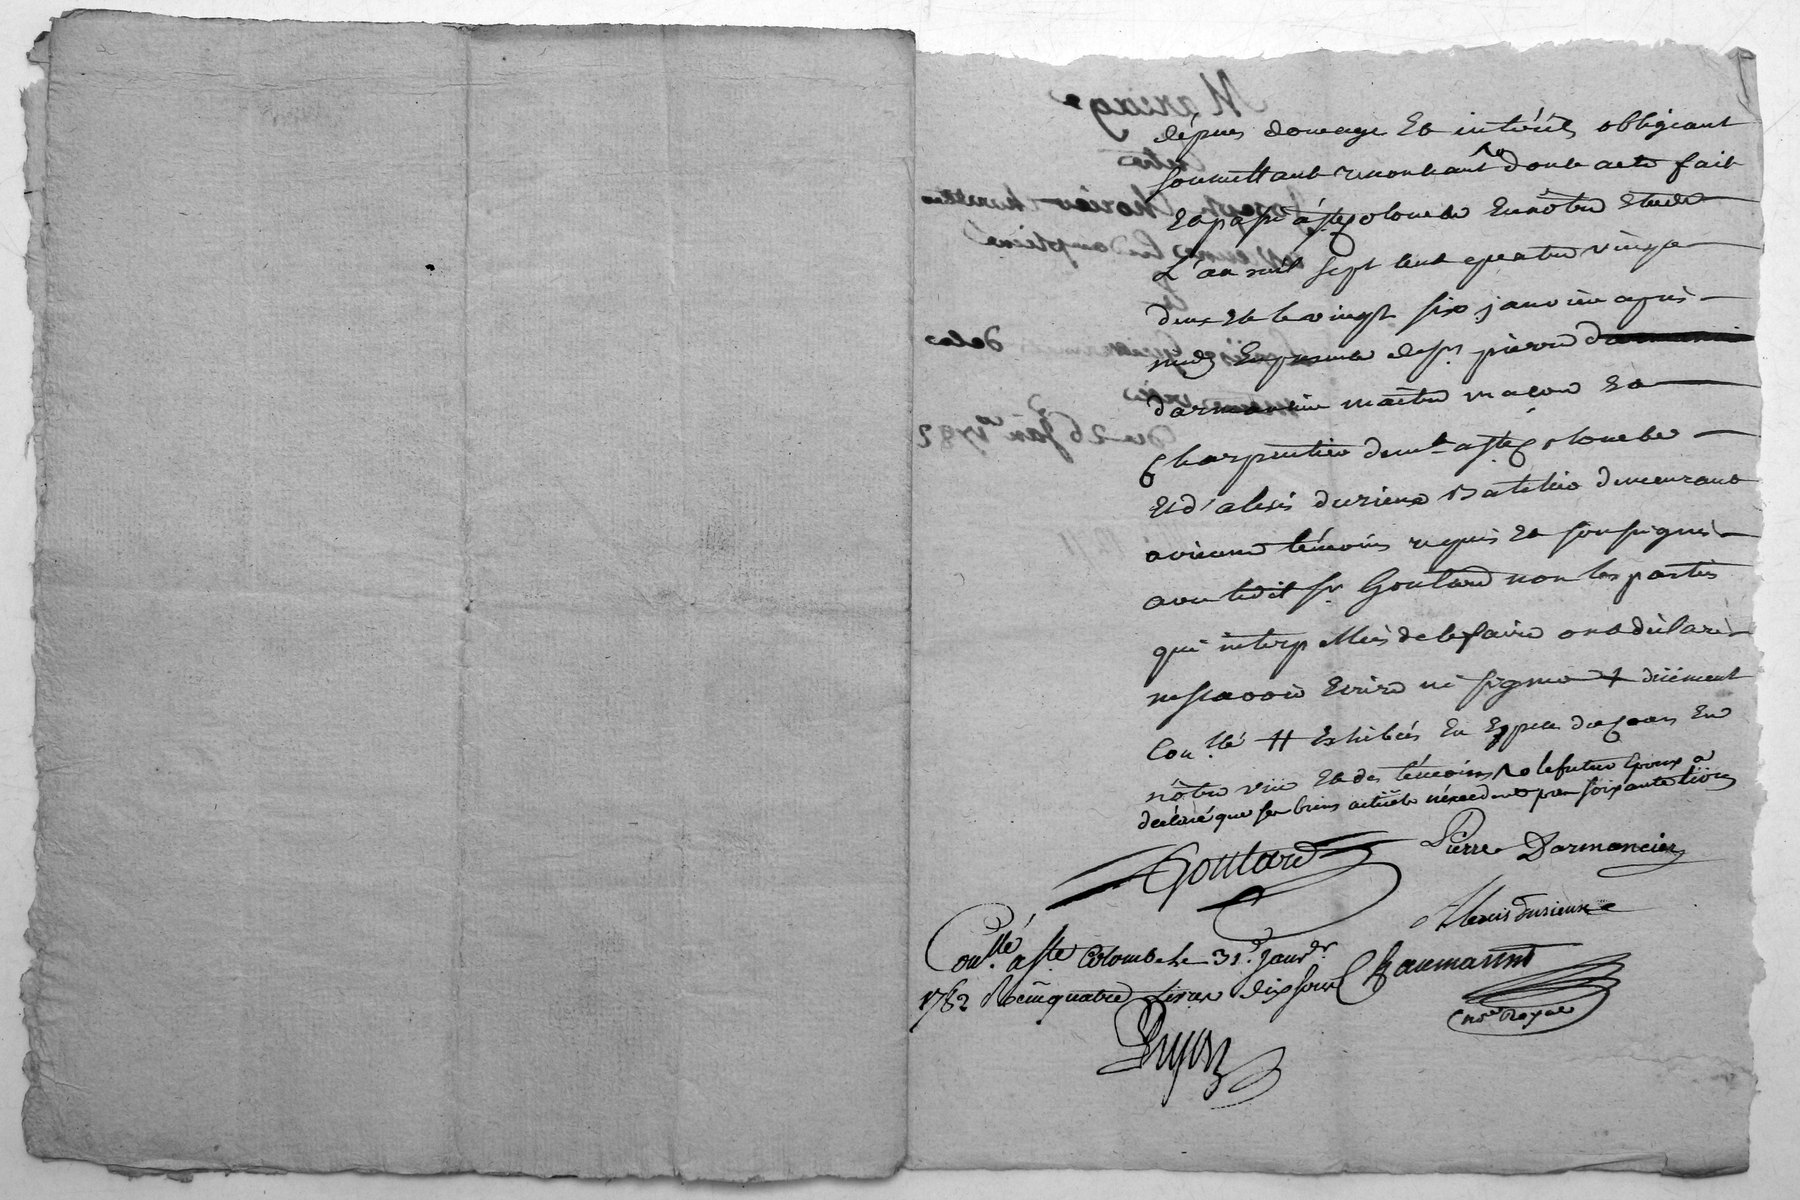 dépens domage Et intérêts obligeant
soumettant renonceant No dont acte fait
Et passé à Ste Colombe En nôtre Etude
L'an mil sept cent quatre vingt
deux Et le vingt six janvier après
midy En presence de sr pierre
darmancier maître maçon Et
Charpentier demt a Ste Colombe
Et d'alexis durieux Batelier demeurant
a vienne témoins requis Et soussignés
avec ledit sr Goutard non les parties
qui interpellées de le faire ont déclaré
ne sçavoir Ecrire ni signer + duement
Conllé # Exhibées En Especes du Cours En
nôtre vüe Et des témoins No le futur Epoux a
déclaré que ses biens actuels n'excedent pas soixante livres
Goutard
Pierre Darmancier
Alexis durieux
Conllé a Ste Colombe le 31e Janvr
1782 R cinquatre livres dix sous
Chaumartin
nore Royal
Mariage
Entre
Joseph
Et
du 26 Janer 1782